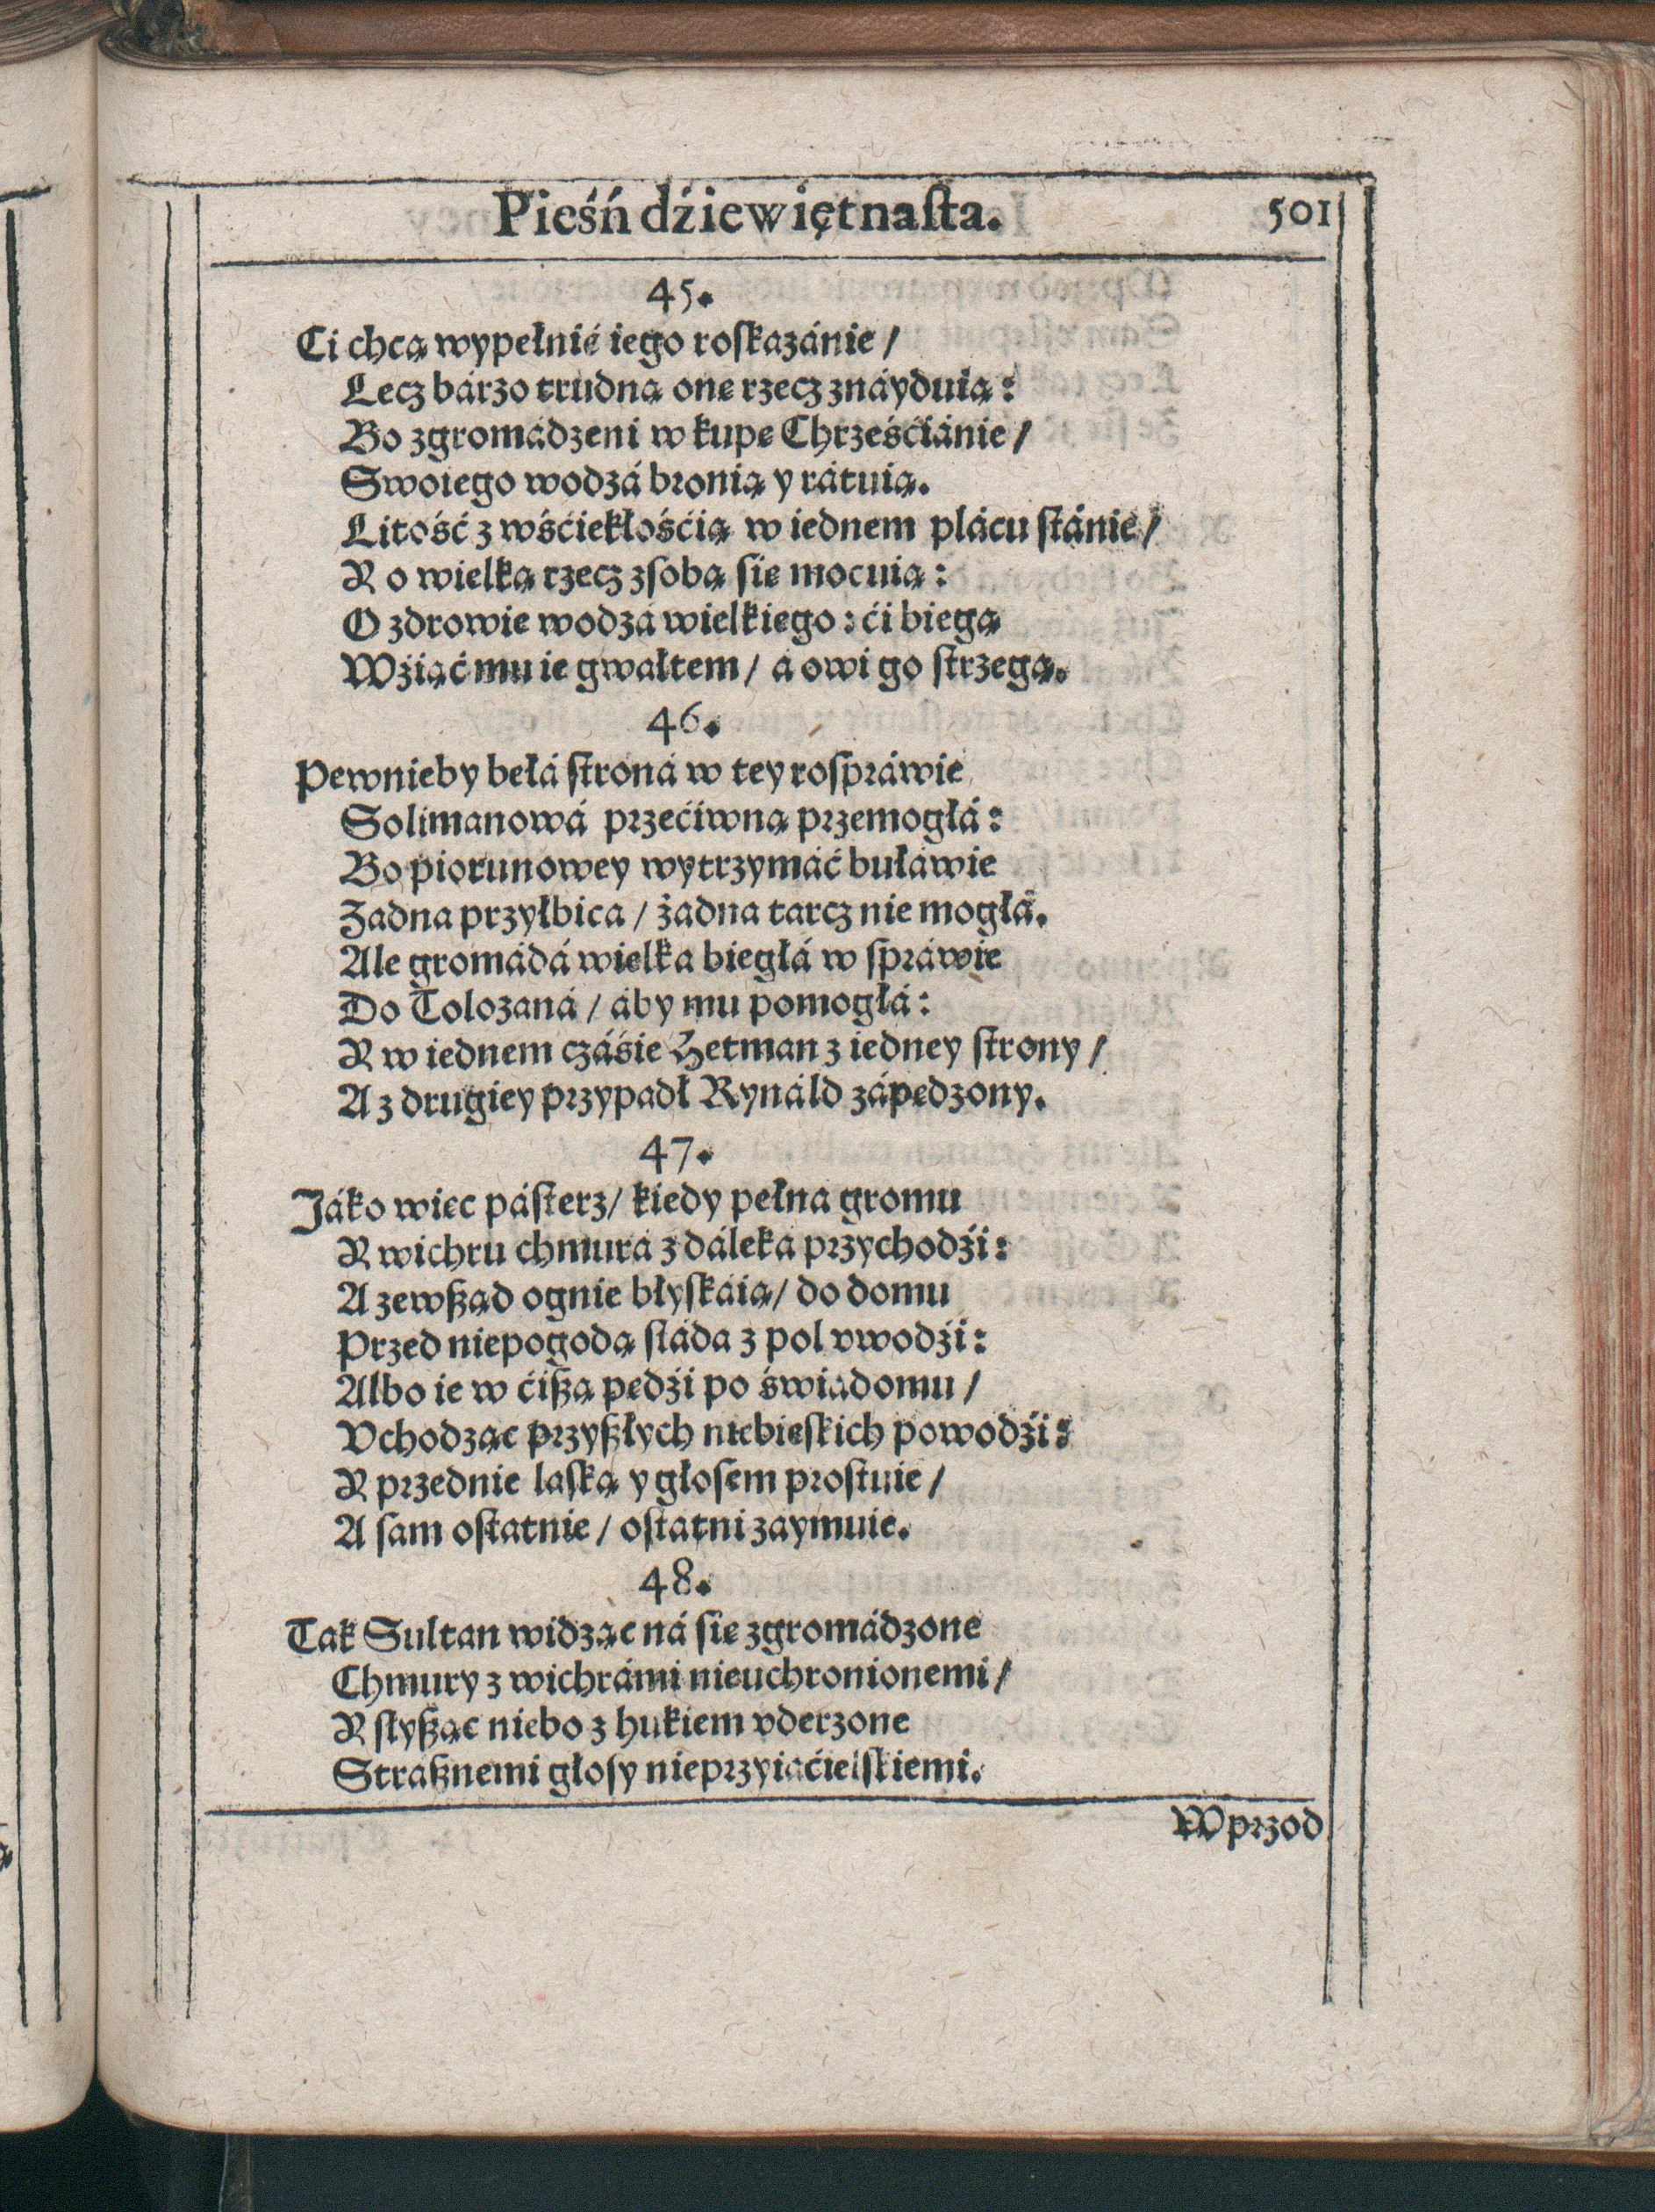 Pieśń dźiewiętnaſta. 501
45.
Ci chcą wypełnić iego roſkazánie /
Lecz bárzo trudną one rzecz znáyduią:
Bo zgromádzeni w kupę Chrześćiánie /
Swoiego wodzá bronią y rátuią.
Litość z wśćiekłośćią w iednem plácu ſtánie /
Y o wielką rzecz zſobą ſię mocuią:
O zdrowie wodzá wielkiego: ći biegą
Wźiąć mu ie gwałtem / á owi go ſtrzegą.
46.
Pewnieby bełá ſtroná w tey roſpráwie
Solimanowá przećiwną przemogłá:
Bo piorunowey wytrzymáć buławie
Żadna przyłbica / żadna tarcz nie mogłá.
Ale gromádá wielka biegłá w ſpráwie
Do Tolozaná / áby mu pomogłá:
Y w iednem czáśie Hetman z iedney ſtrony /
A z drugiey przypadł Rynáld zápędzony.
47.
Jáko więc páſterz / kiedy pełna gromu
Y wichru chmurá z dáleká przychodźi:
A zewſząd ognie błyſkáią / do domu
Przed niepogodą ſtáda z pol vwodźi:
Albo ie w ćiſzą pędźi po świádomu /
Vchodząc przyſzłych niebieſkich powodźi:
Y przednie laſką y głoſem proſtuie /
A ſam oſtatnie / oſtatni zaymuie.
48.
Tak Sultan widząc ná ſię zgromádzone
Chmury z wichrámi nieuchronionemi /
Y ſłyſząc niebo z hukiem vderzone
Straſznemi głoſy nieprzyiaćielſkiemi.
Wprzod